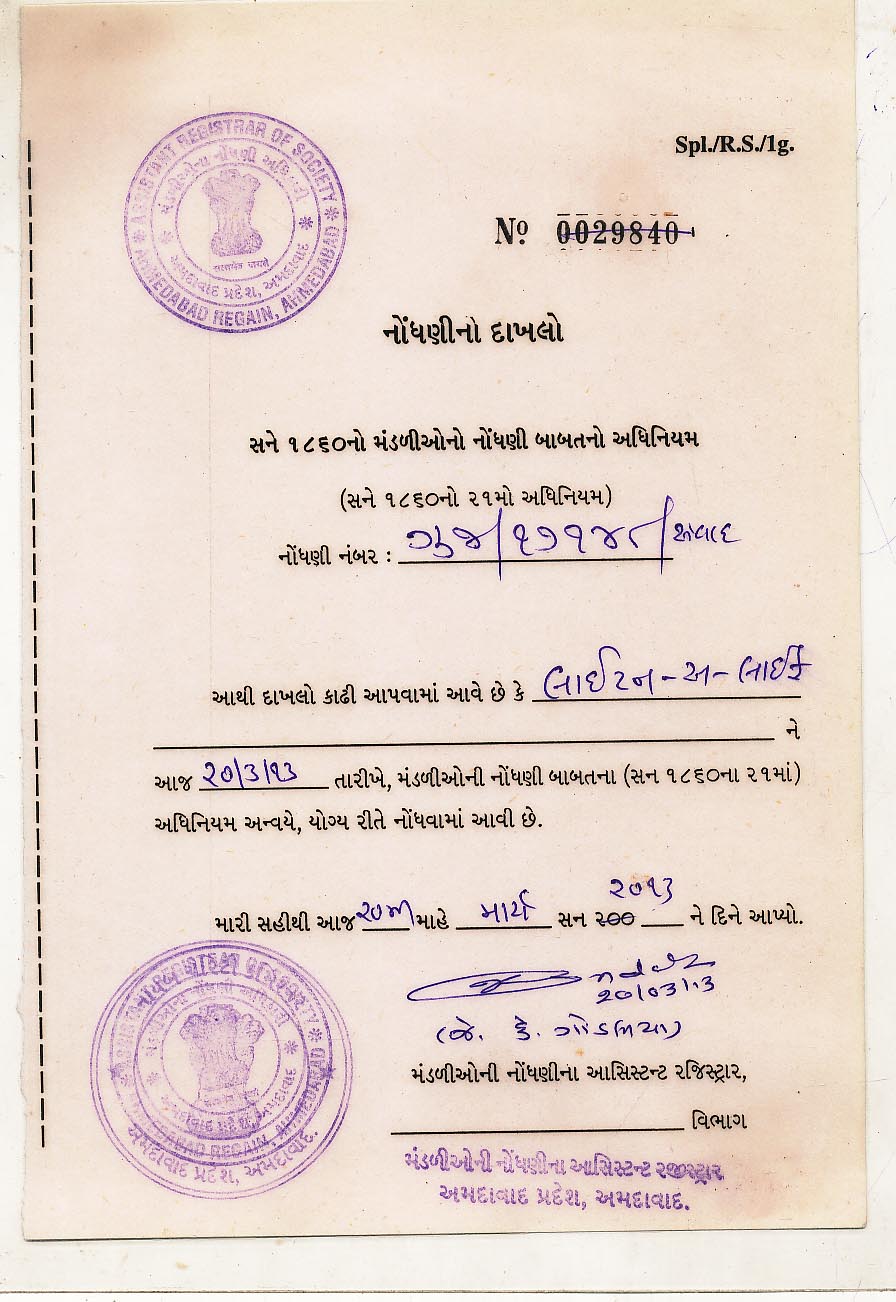 ASSISTANT REGISTRAR OF SOCIETY
AHMEDABAD REGAIN, AHMEDABAD
મંડળીઓના નોંધણી
સત્યમેવ જયતે
અમદાવાદ પ્રદેશ, અમદાવાદ
Spl./R.S./1g.
Nº 0029840
નોંધણીનો દાખલો
સને ૧૮૬૦નો મંડળીઓનો નોંધણી બાબતનો અધિનિયમ
(સને ૧૮૬૦નો ૨૧મો અધિનિયમ)
નોંધણી નંબર : ગુજ/૧૭૧૪૮/
આથી દાખલો કાઢી આપવામાં આવે છે કે લાઈટન-અ-લાઈફ
ને
આજ ૨૦/૩/૧૩ તારીખે, મંડળીઓની નોંધણી બાબતના (સન ૧૮૬૦ના ૨૧માં)
અધિનિયમ અન્વયે, યોગ્ય રીતે નોંધવામાં આવી છે.
૨૦૧૩
મારી સહીથી આજ ૨૦મી માહે માર્ચ સન ૨૦૦ ને દિને આપ્યો.
૨૦/૦૩/૧૩
(જે. કે.
મંડળીઓની નોંધણીના આસિસ્ટન્ટ રજિસ્ટ્રાર,
વિભાગ
મંડળીઓની નોંધણીના આસિસ્ટન્ટ રજીસ્ટ્રાર
અમદાવાદ પ્રદેશ, અમદાવાદ.
REGAIN, AHMEDABAD
અમદાવાદ પ્રદેશ, અમદાવાદ.